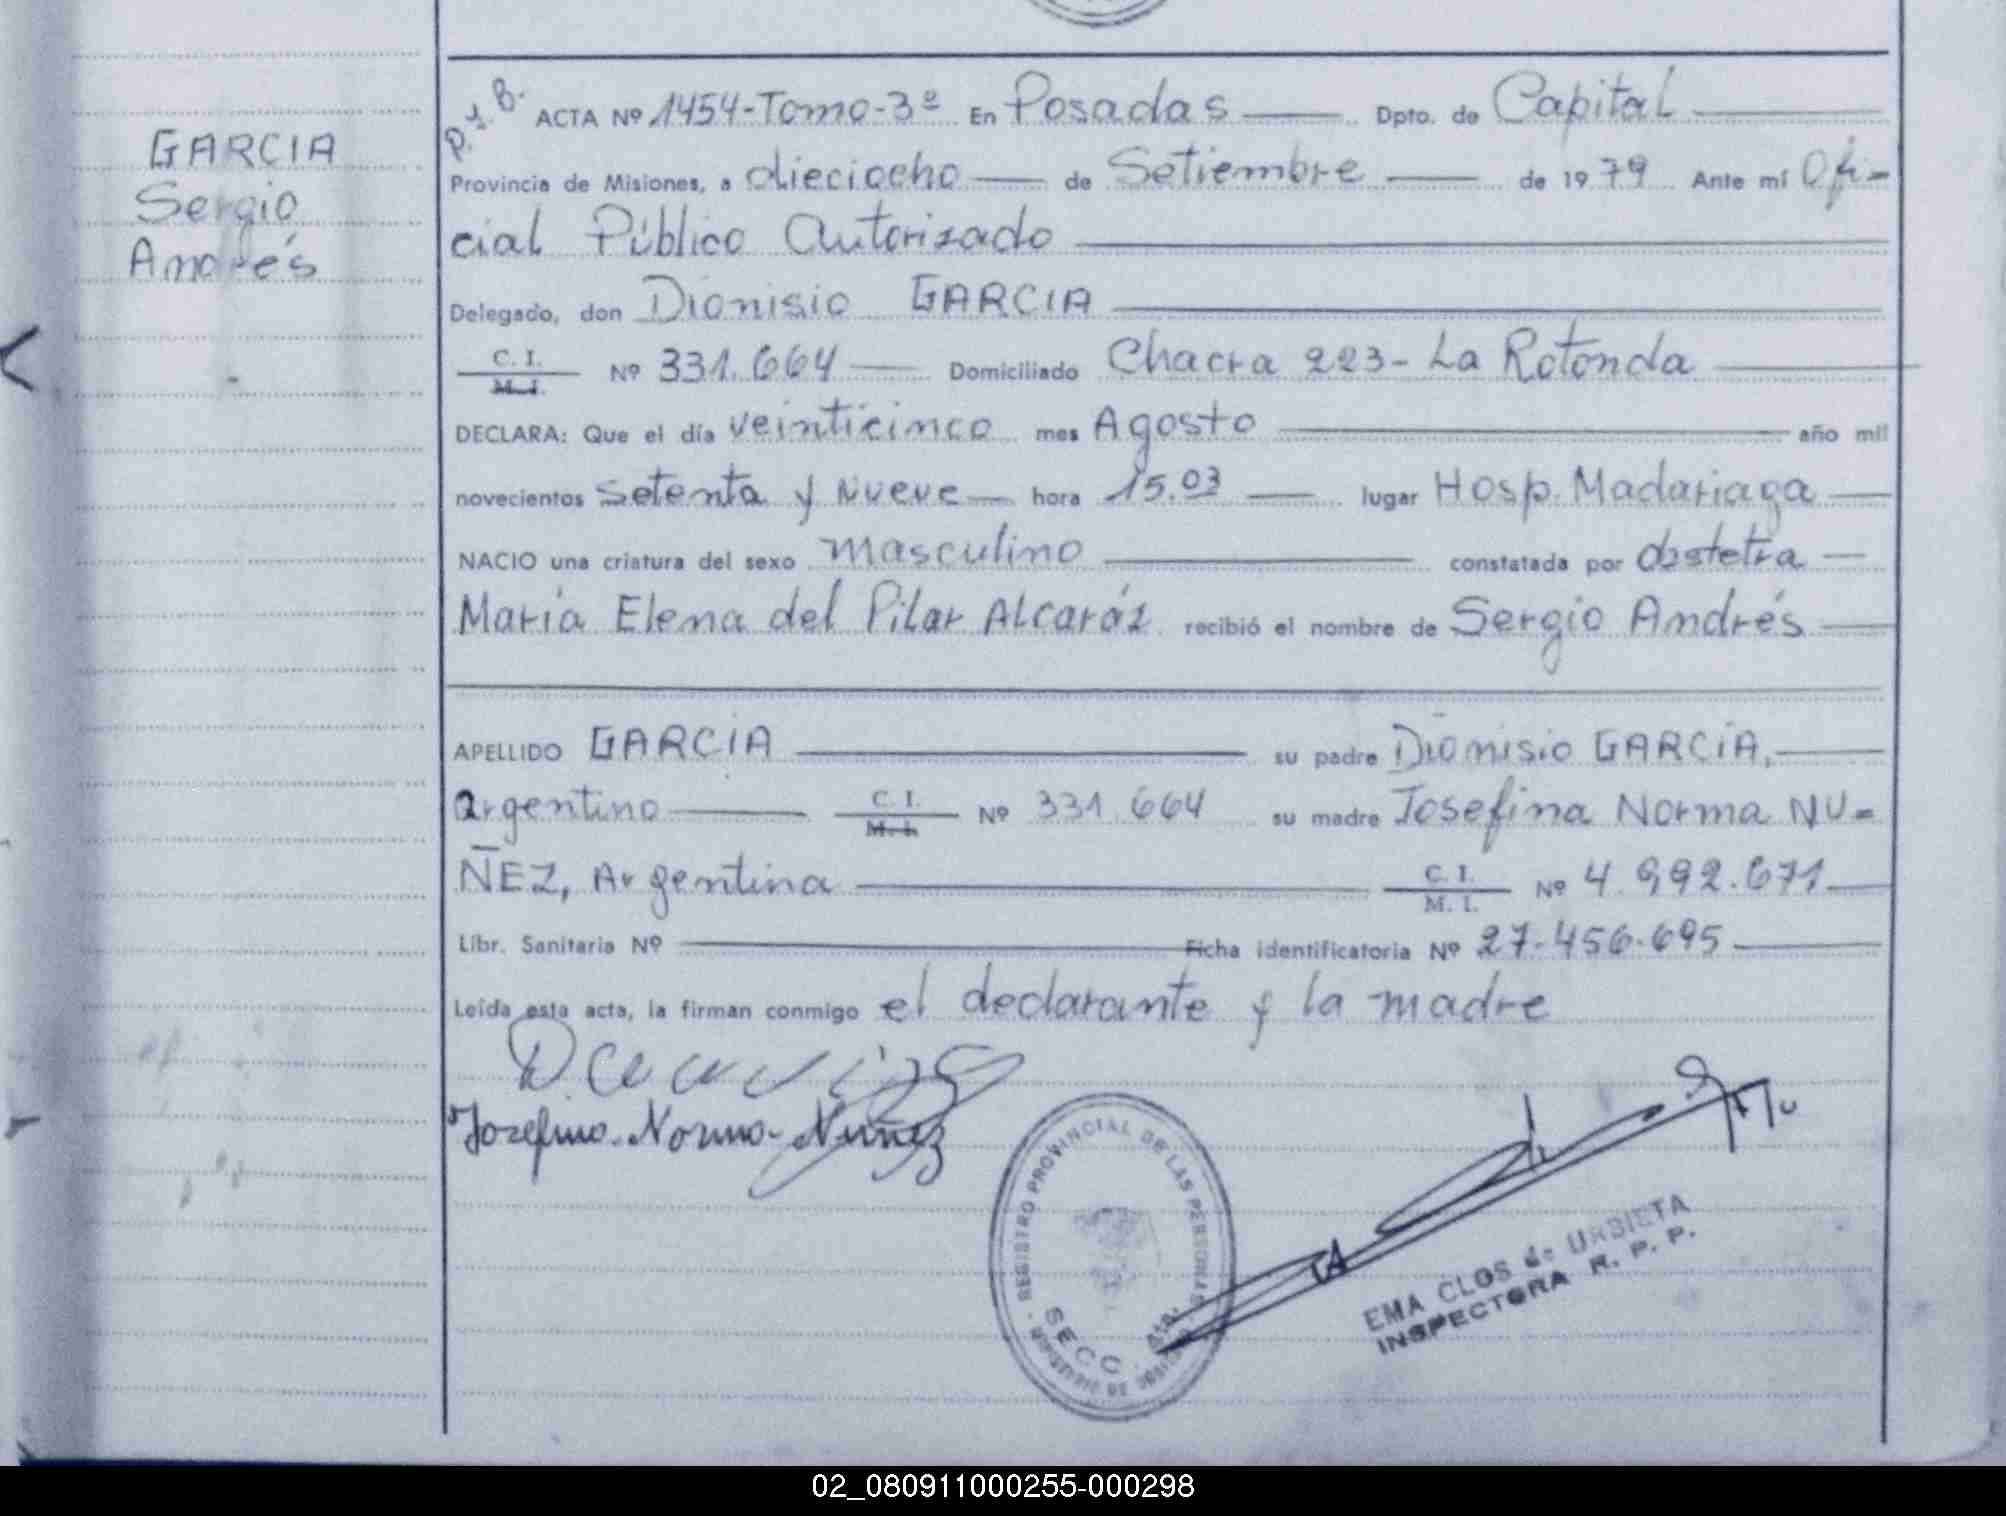 GARCIA
Sergio
Andrés
P.y.B. ACTA Nº 1454-Tomo-3º En Posadas Dpto. de Capital
Provincia de Misiones, a dieciocho de Setiembre de 1979 Ante mí Ofi-
cial Público Autorizado
Delegado, don Dionisio GARCIA
C. I.
M. I. Nº 331.664 Domiciliado Chacra 223- La Rotonda
DECLARA: Que el día veinticinco mes Agosto año mil
novecientos setenta y nueve hora 15.03 lugar Hosp. Madariaga
NACIO una criatura del sexo masculino constatada por obstetra
María Elena del Pilar Alcaráz recibió el nombre de Sergio Andrés
APELLIDO GARCÍA su padre Dionisio GARCÍA,
argentino C. I.
M. I. Nº 331.664 su madre Josefina Norma NU=
ÑEZ, Argentina C. I.
M. I. Nº 4.992.671
Libr. Sanitaria Nº Ficha identificatoria Nº 27-456-695
Leída esta acta, la firman conmigo el declarante y la madre
Josefina-Norma-Nuñez
REGISTRO PROVINCIAL DE LAS PERSONAS
SECC.
EMA CLOS de URBIETA
INSPECTORA R. P. P.
02_080911000255-000298